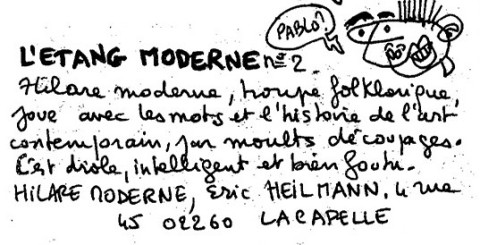 PABLO?
L'ETANG MODERNE n°2.
Hilare moderne, troupe folklorique,
joue avec les mots et l'histoire de l'art
contemporain, par moults découpages.
C'est drole, intelligent et bien foutu.
HILARE MODERNE, Eric HEILMANN. 4 rue
45 02260 LA CAPELLE